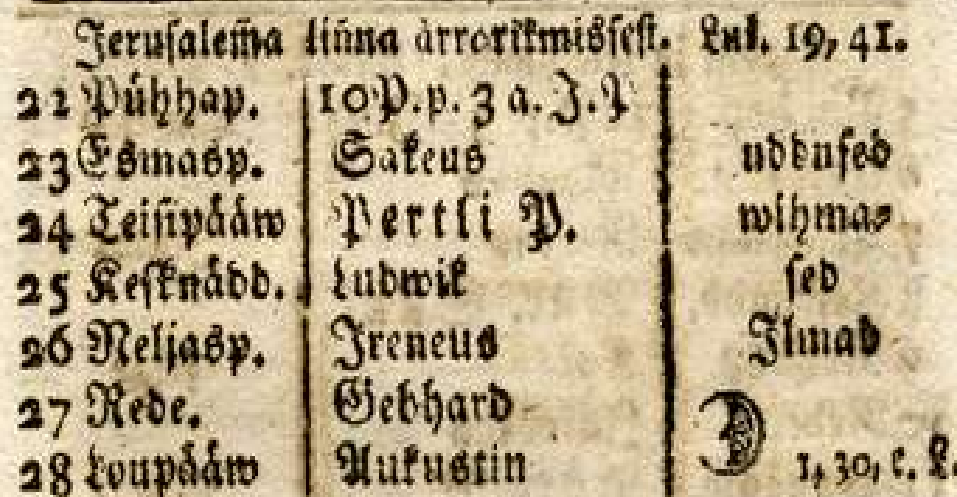 Jerusalem̃a liñna ärrorikmissest. Luk. 19, 41.
22 Pühhap. 10 P. p. 3 a. J. P
23 Esmasp. Sakeus uddused
24 Teisipääw Pertli P. wihmas-
25 Kesknädd. Ludwik sed
26 Neljasp. Ireneus Ilmad
27 Rede. Gebhard
28 Loupääw Aukustin 1, 30, e. L.